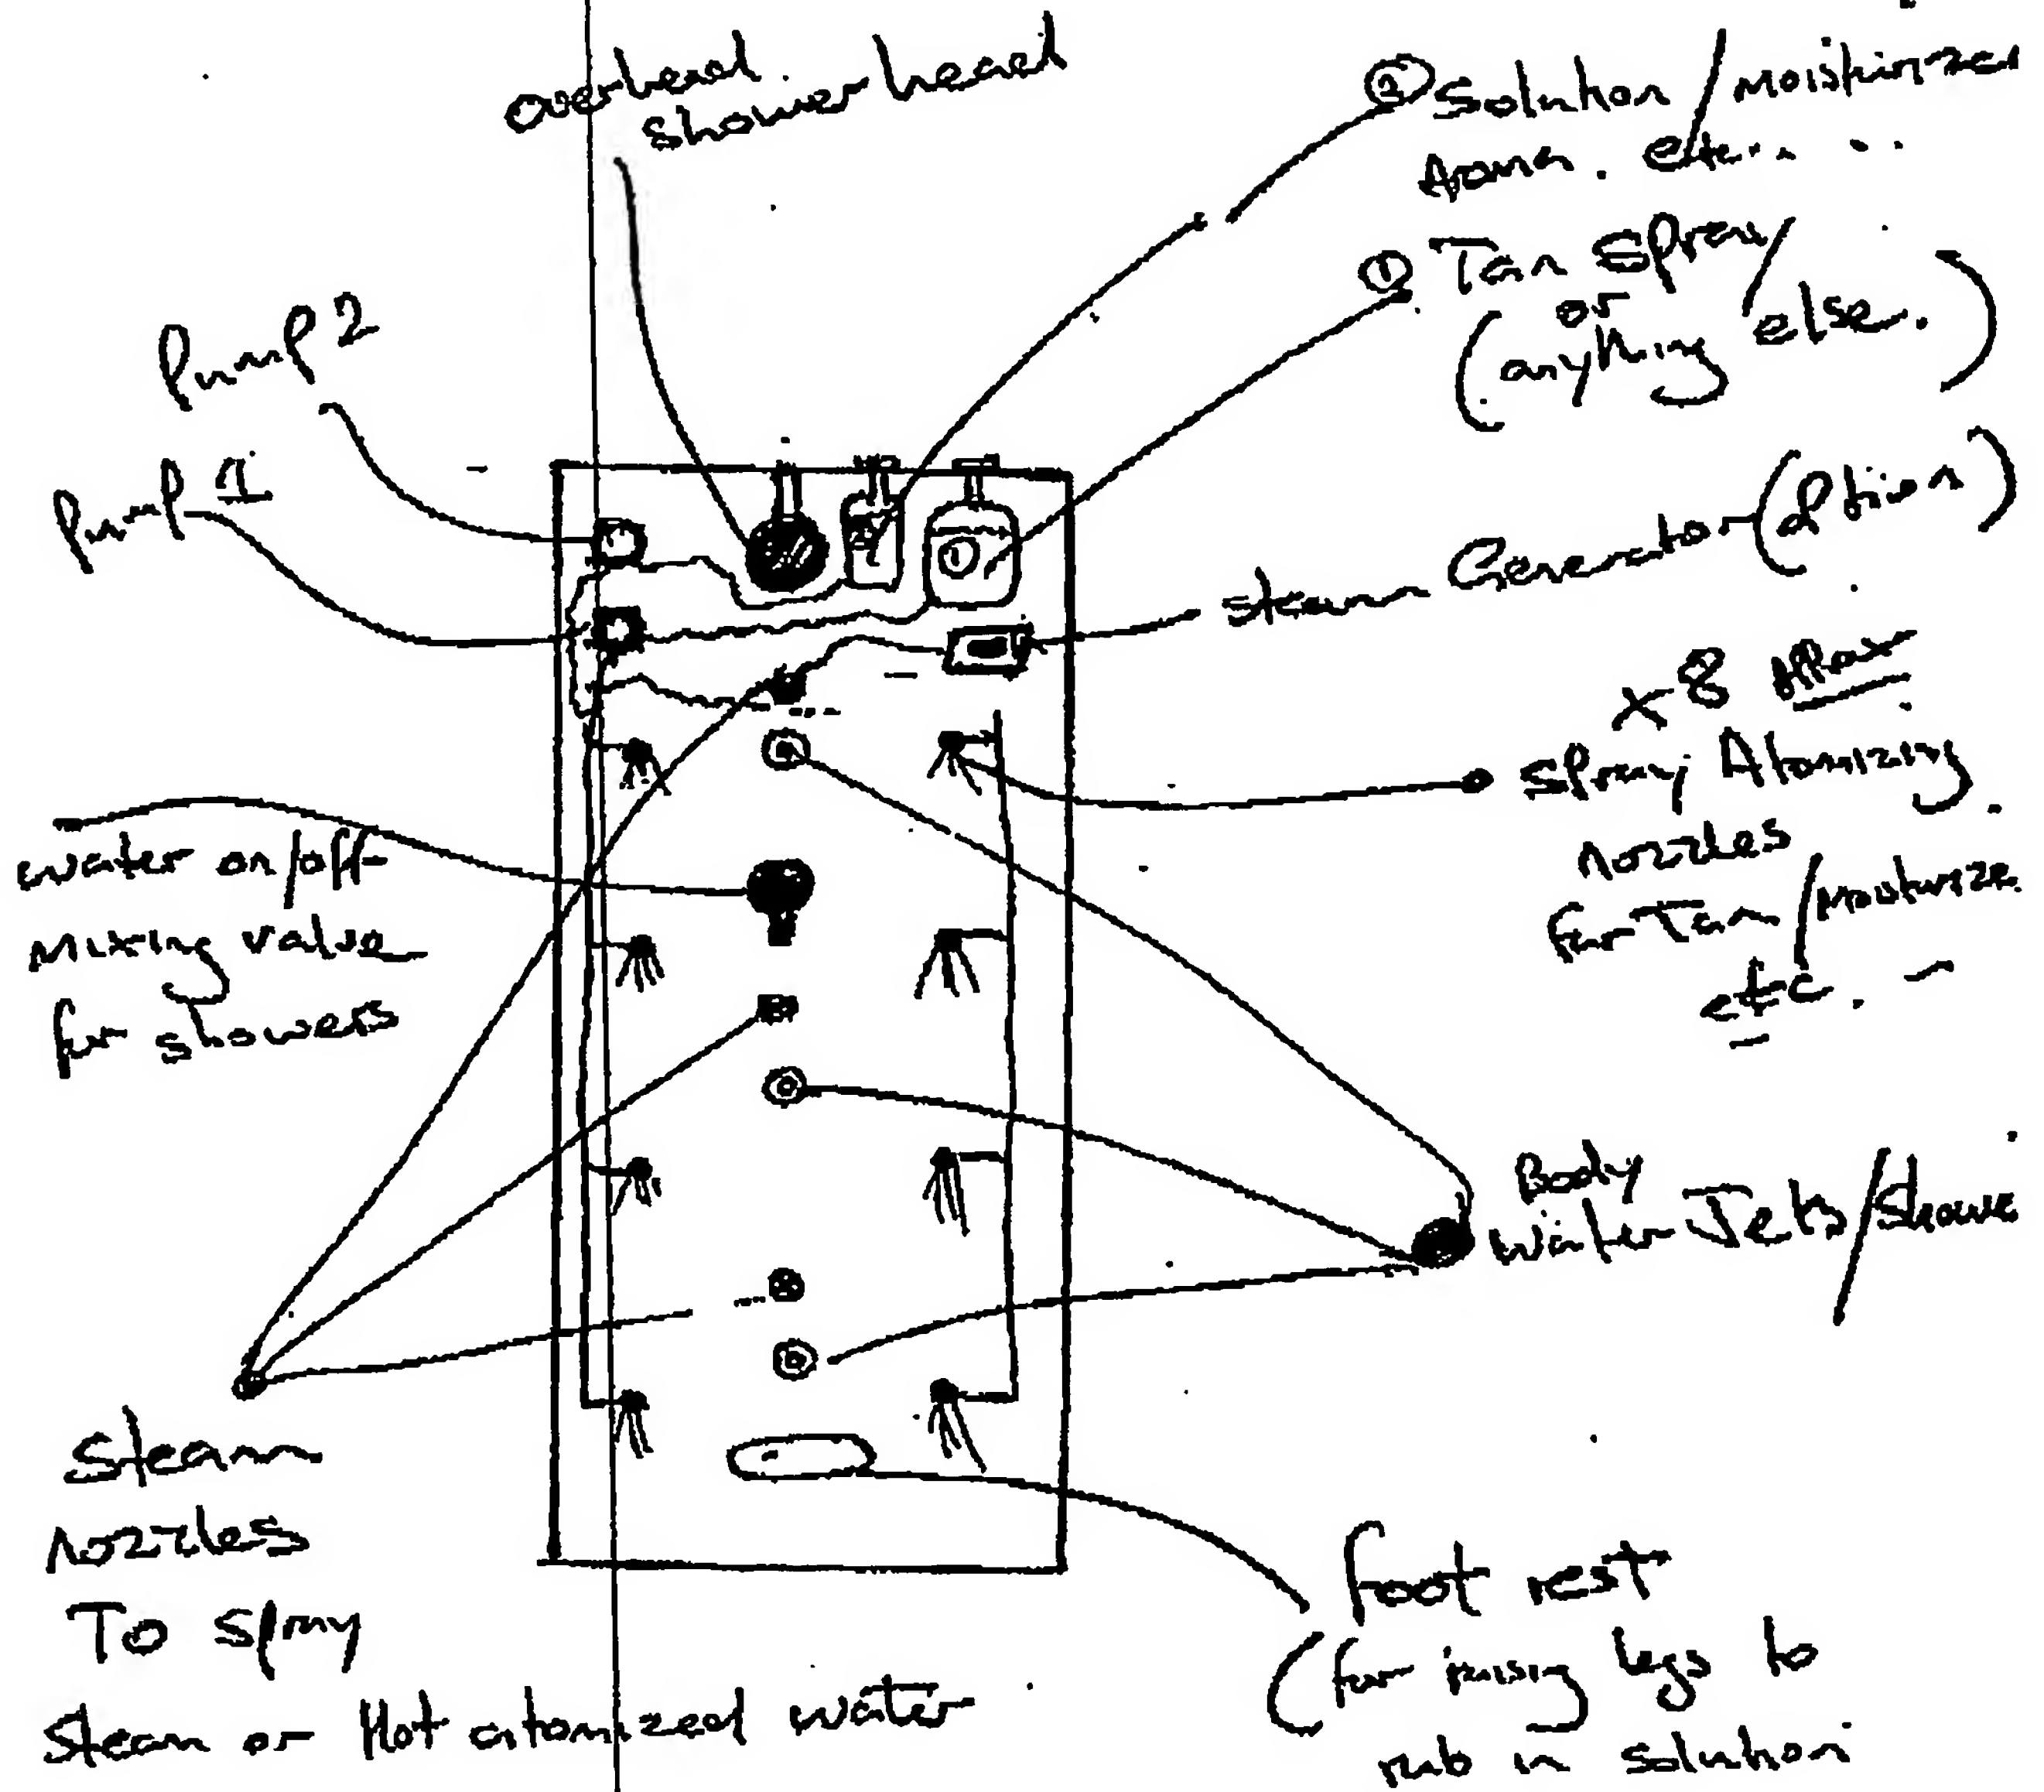 overhead
shower head
② Solution / Moisturizer
Aroma. etc...
① Tan Spray /
or
(anything else.)
Pump 2
Pump 1
Steam Generator (Option)
x 8 Aprox
Spray Atomizing
nozzles
for Tan / Moisturize
etc.
water on/off
Mixing valve
for showers
①
Body
Water Jets / Shower
Steam
nozzles
To spray
Steam or Hot atomized water
foot rest
(for raising legs to
rub in solution